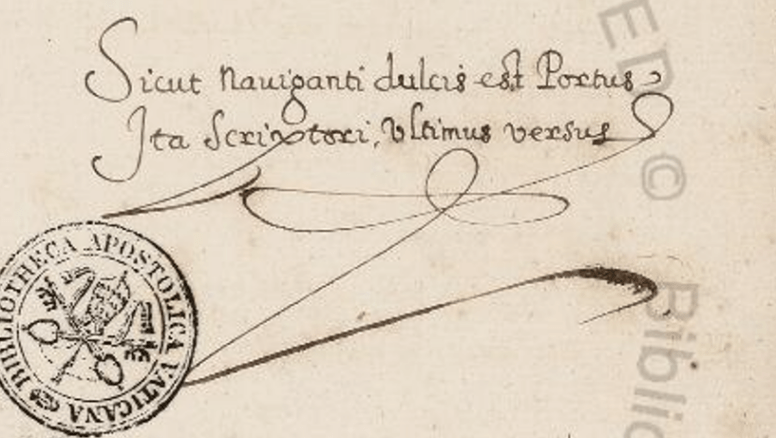 Sicut nauiganti dulcis est Portus
Ita Scriptori, Ultimus versus
BIBLIOTHECA APOSTOLICA VATICANA
ED ©
Biblio